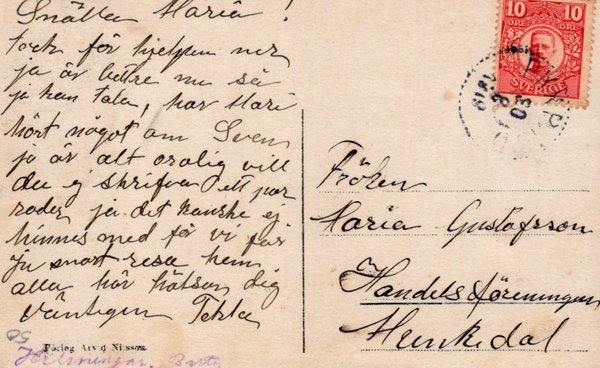 Snälla Maria!
tack för hjelpen ner
ja är bettre nu så
ja kan tala, har Mari
hört något om Sven
ja är alt orolig vill
du ej skrifva ett par
rader ja det kanske ej
hinnes med för vi får
ju snart resa hem
alla här hälsar dig
Vänligen Tekla
50
Förlag Arvid Nilsson
10 10
ÖRE ÖRE
SVERIGE
Fröken
Maria Gustafsson
Handelsföreningen
Munkedal